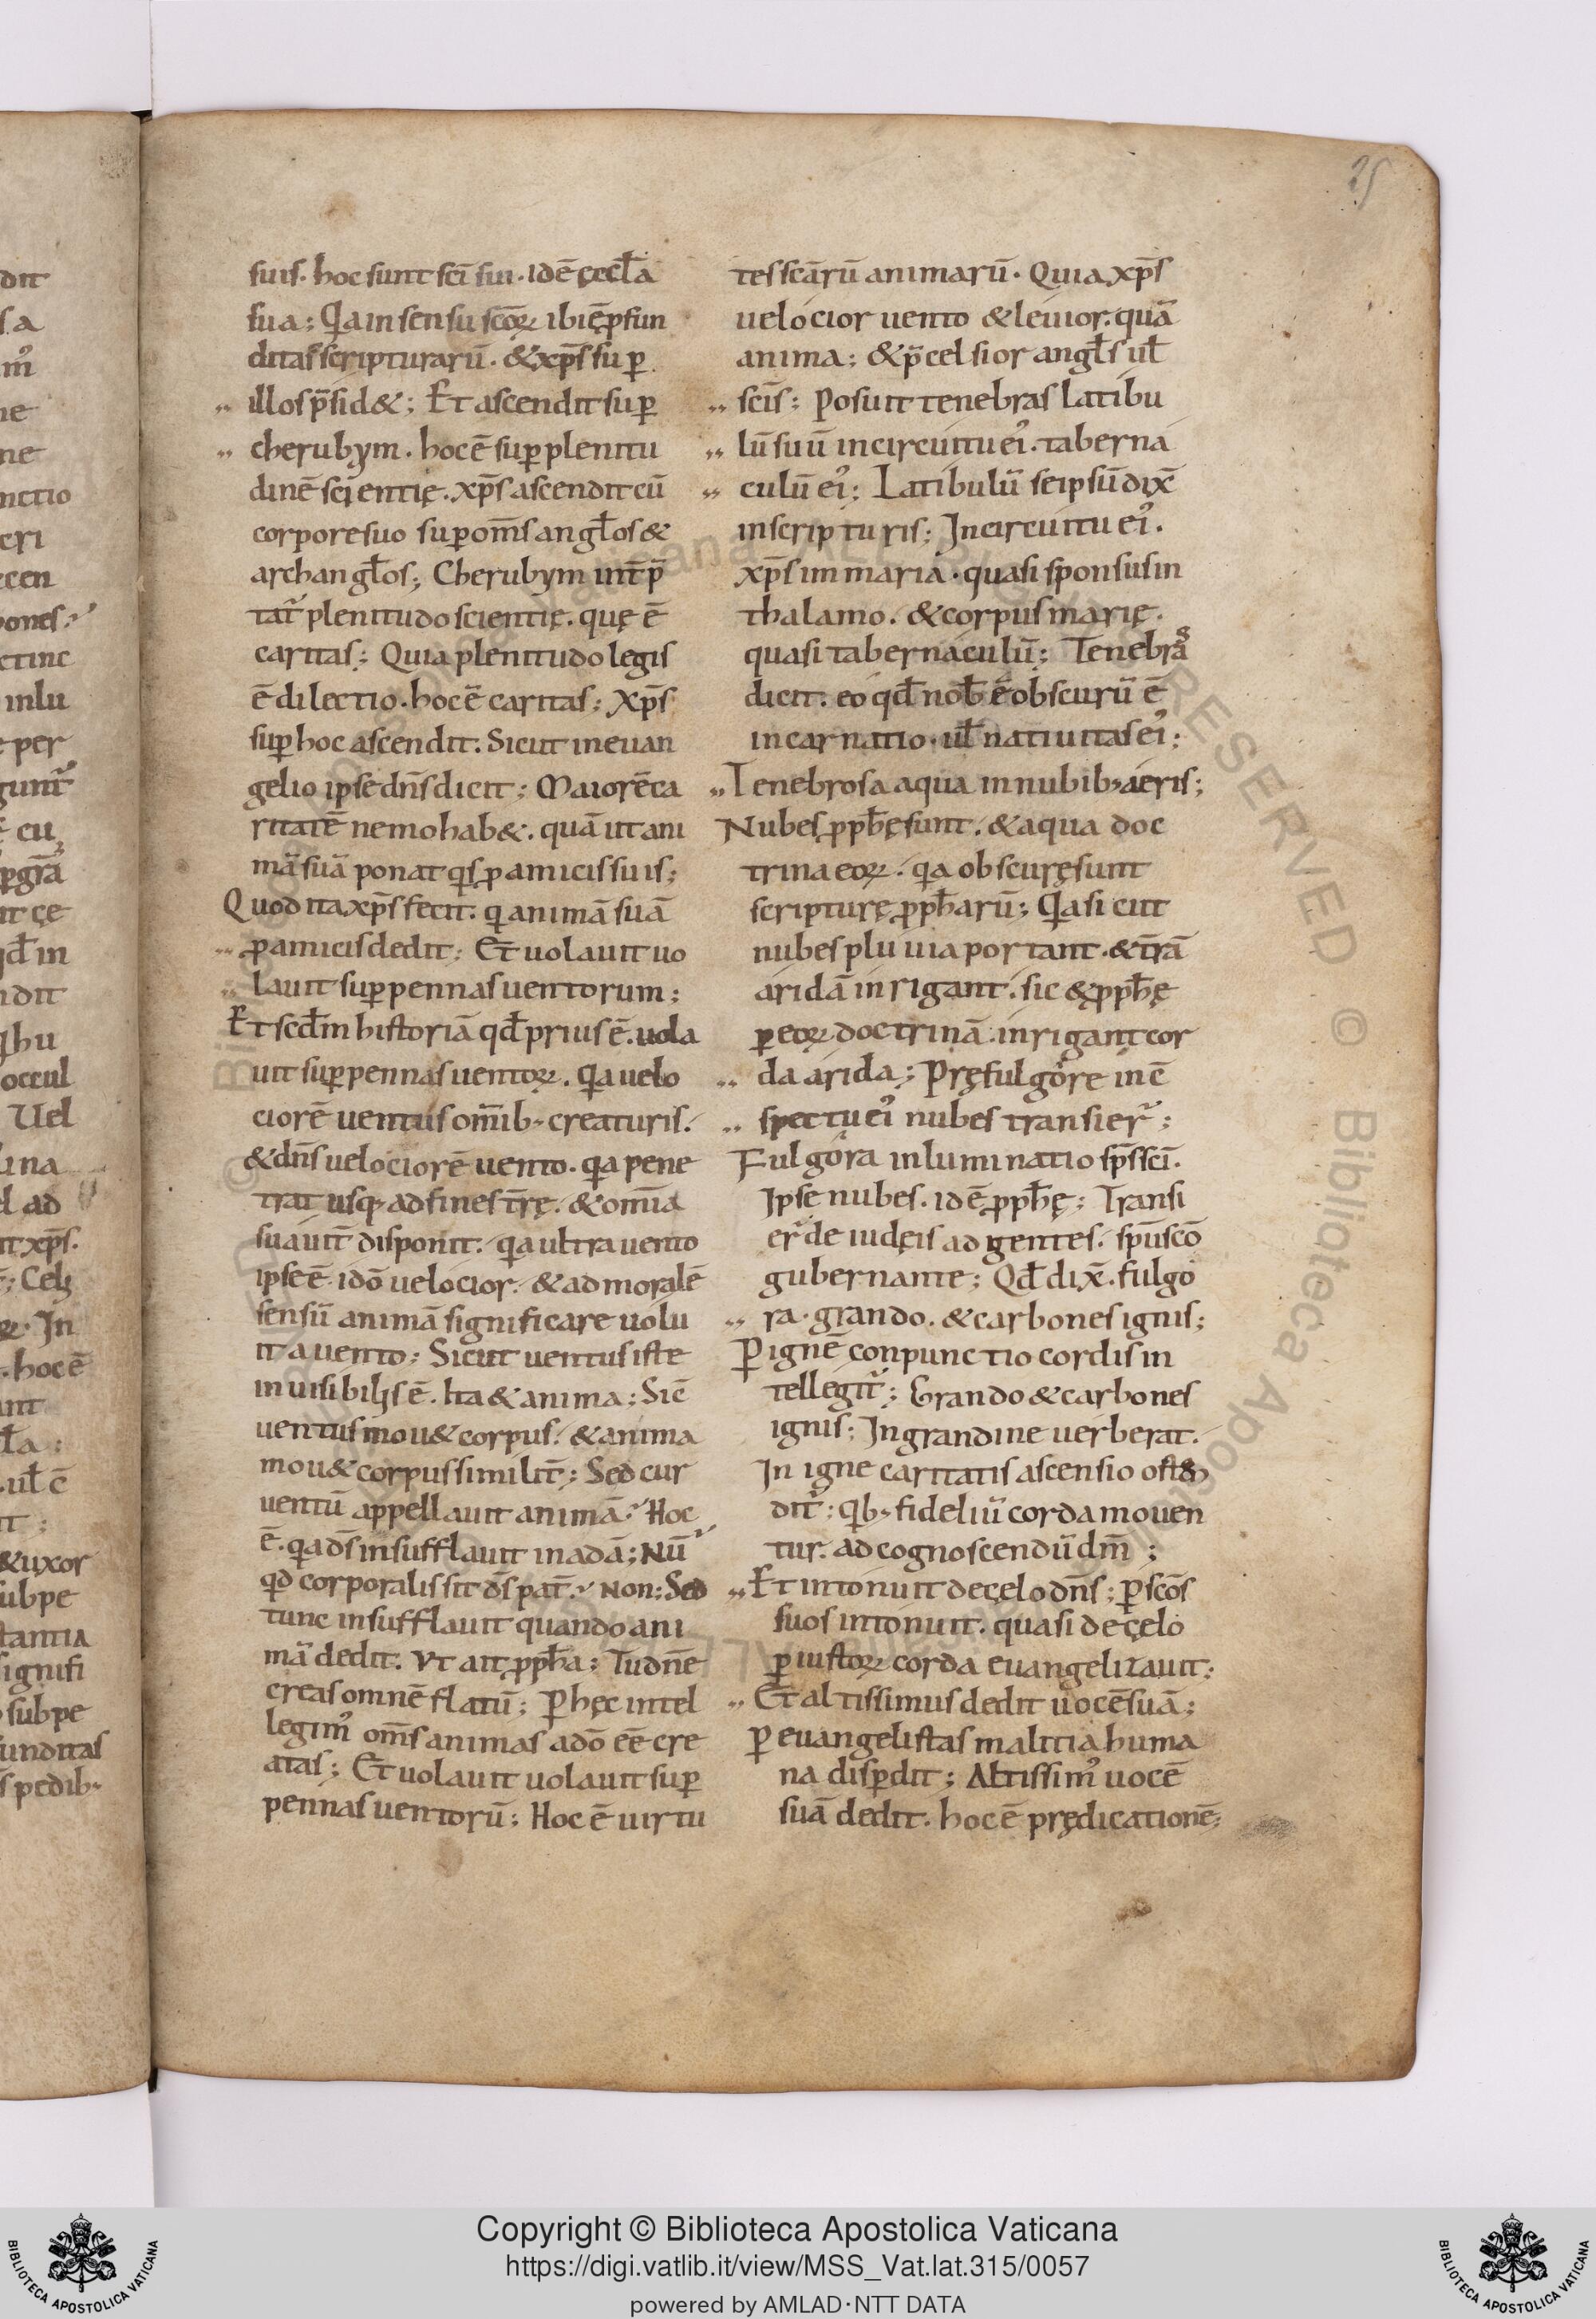 25
suis. hoc sunt sc̄i sui. id ē ęccl̄a
sua; Qa in sensu sc̄oꝝ ibi ē ꝓfun
ditas scripturarū. & xp̄s suꝑ
illos p̄sid&; Et ascendit suꝑ
cherubym. hoc ē suꝑ plenitu
dinē scientię. xp̄s ascendit cū
corpore suo suꝑ om̄s angl̄os &
archangl̄os; Cherubym int̄p̄
tat᷑ plenitudo scientię. quę ē
caritas; Quia plenitudo legis
ē dilectio. hoc ē caritas; xp̄s
suꝑ hoc ascendit. Sicut in euan
gelio ipse dn̄s dicit; Maiorē ca
ritatē nemo hab&. quā ut ani
mā suā ponat q̄s ꝓ amicis suis;
Quod ita xp̄s fecit. q̄ animā suā
ꝓ amicis dedit; Et uolauit uo
lauit suꝑ pennas uentorum;
Et scd̄m historiā qd̄ prius ē. uola
uit suꝑ pennas uentoꝝ. Qa uelo
ciorē uentus om̄ib; creaturis.
& dn̄s uelociorē uento. qa pene
trat usq; ad fines t̄rę. & om̄ia
suauit̄ disponit. qa ultra uento
ipse ē. idō uelocior. & ad moralē
sensū animā significare uolu
it a uento; Sicut uentus iste
inuisibilis ē. Ita & anima; Sic̄
uentus mou& corpus. & anima
mou& corpus similit̄; Sed cur
uentū appellauit animā? Hoc
ē. qa d̄s insufflauit in adā; Nū
qd̄ corporalis sit d̄s pat̄? Non; Sed
tunc insufflauit quando ani
mā dedit. Vt ait ꝓph̄a; Tu dn̄e
creas omnē flatū; ꝑ hęc intel
legim᾿ om̄s animas a dō eē cre
atas; Et uolauit uolauit suꝑ
pennas uentorū; Hoc ē uirtu
tes sc̄arū animarū. Quia xp̄s
uelocior uento & leuior. quā
anima; & p̄celsior angl̄s ul̄
sc̄is; Posuit tenebras latibu
lū suū in circuitu ei᾿. taberna
culū ei᾿; Latibulū seipsū dix̄
in scripturis; In circuitu ei᾿.
xp̄s im maria. quasi sponsus in
thalamo. & corpus marię.
quasi tabernaculū; Tenebras
dicit. eo qd̄ nob̄ ē obscurū ē
incarnatio. ul̄ natiuitas ei᾿;
Tenebrosa aqua in nubib; aeris;
Nubes ꝓph̄ę sunt. & aqua doc
trina eoꝝ. qa obscurę sunt
scripturę ꝓph̄arū; Qa sicut
nubes pluuia portant. & t̄rā
aridā inrigant. sic & ꝓph̄ę
ꝑ eoꝝ doctrinā inrigant cor
da arida; Pręfulgore in c̄
spectu ei᾿ nubes transier᷑;
Fulgora inluminatio sp̄s sc̄i.
Ipse nubes. id ē ꝓph̄ę; Transi
er᷑ de iudęis ad gentes. sp̄u sc̄o
gubernante; Qd̄ dix̄. fulgo
ra. grando. & carbones ignis;
ꝑ ignē conpunctio cordis in
tellegit᷑; Grando & carbones
ignis; In grandine uerberat.
In igne caritatis ascensio ost&n
dit᷑; qb; fideliū corda mouen
tur. ad cognoscendū dm̄;
Et intonuit de cęlo dn̄s; ꝑ sc̄os
suos intonuit. quasi de cęlo
ꝑ iustoꝝ corda euangelizauit;
Et altissimus dedit uocē suā;
ꝑ euangelistas malitia huma
na disꝑdit; Altissim᾿ uocē
suā dedit. hoc ē prędicationē;
Copyright © Biblioteca Apostolica Vaticana
https://digi.vatlib.it/view/MSS_Vat.lat.315/0057
powered by AMLAD·NTT DATA
BIBLIOTECA APOSTOLICA VATICANA
BIBLIOTECA APOSTOLICA VATICANA